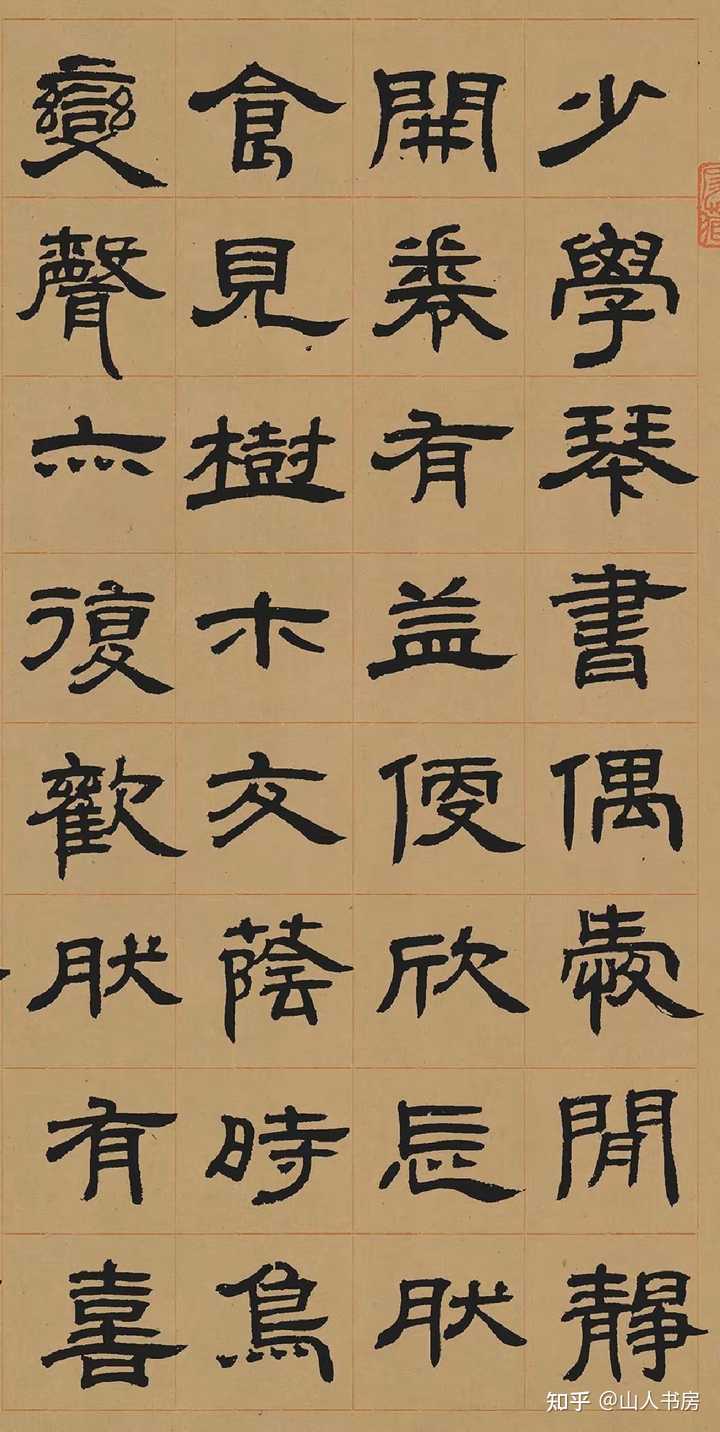 少學琴書偶愛閒靜
開卷有益便欣忘肰
食見樹木交蔭時鳥
變聲亦復歡肰有喜
知乎 @山人书房